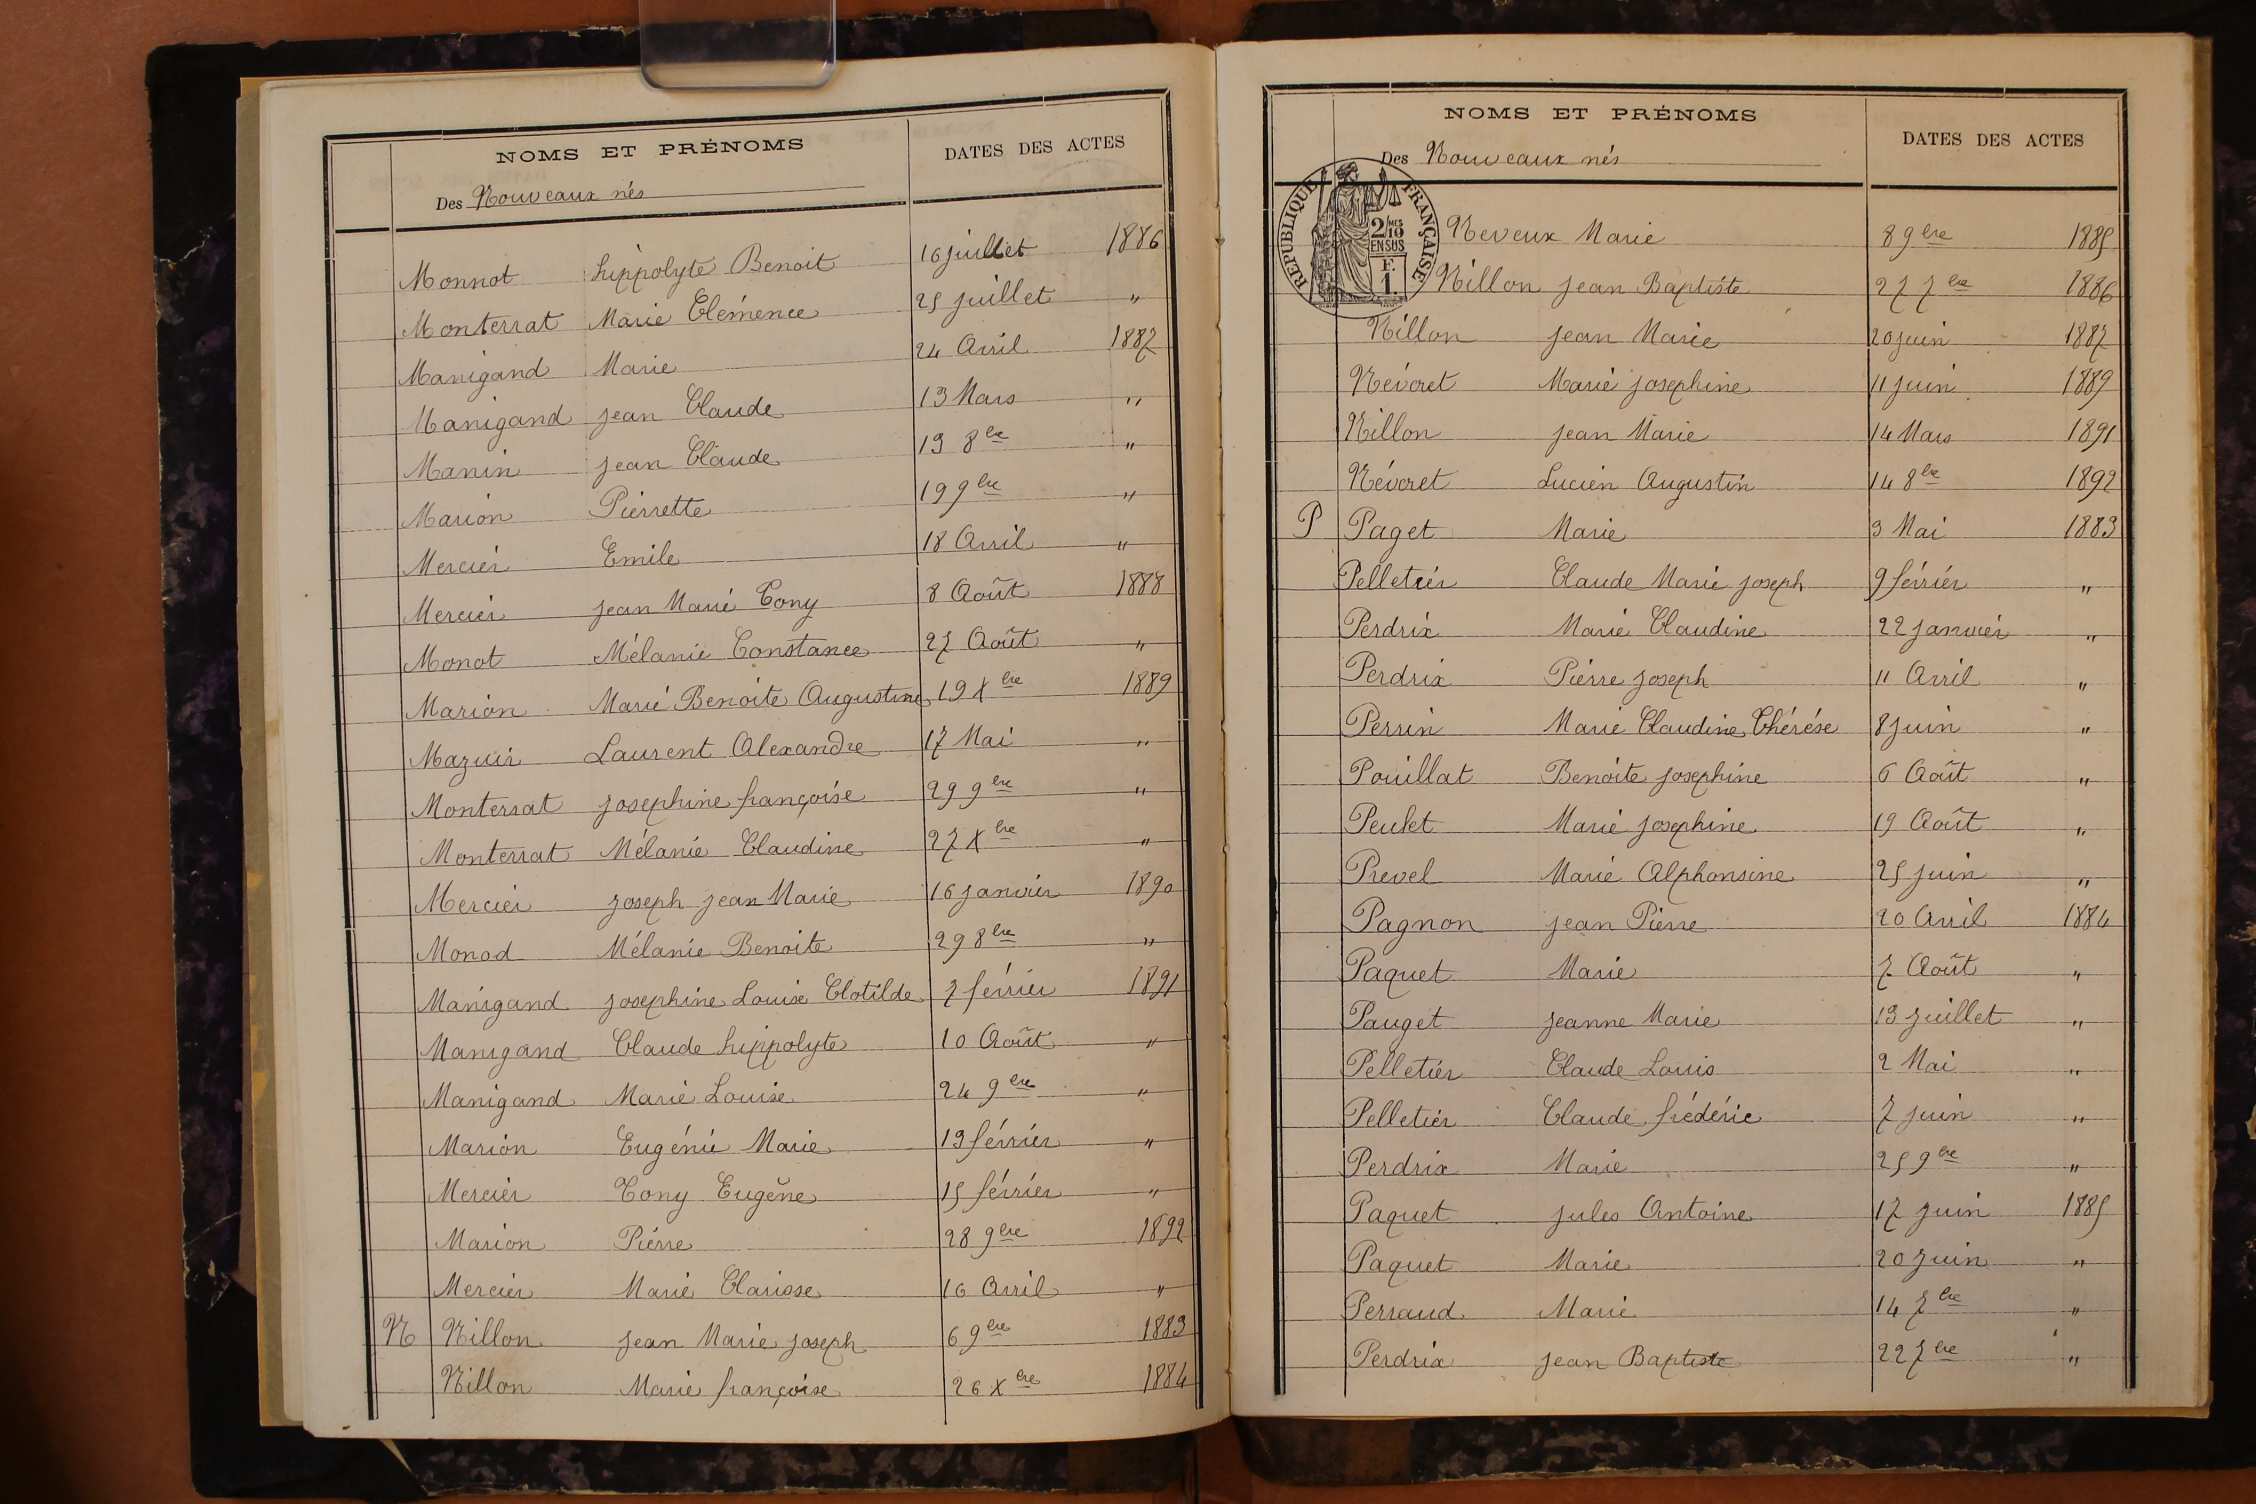 NOMS ET PRÉNOMS
Des Nouveaux nés
DATES DES ACTES
Monnot hippolyte Benoit 16 juillet 1886
Monterrat Marie Clémence 25 juillet "
Manigand Marie 24 Avril 1887
Manigand jean Claude 13 Mars "
Manin jean Claude 13 8bre "
Marion Pierrette 19 9bre "
Mercier Emile 18 Avril "
Mercier jean Marie Tony 8 Août 1888
Monot Mélanie Constance 27 Août "
Marion Marie Benoite Augustine 19 Xbre 1889
Mazuir Laurent Alexandre 17 Mai "
Monterrat josephine françoise 29 9bre "
Monterrat Mélanie Claudine 27 Xbre "
Mercier joseph jean Marie 16 janvier 1890
Monod Mélanie Benoite 29 8bre "
Manigand josephine Louise Clotilde 7 février 1891
Manigand Claude hippolyte 10 Août "
Manigand Marie Louise 24 9bre "
Marion Eugénie Marie 13 février "
Mercier Tony Eugène 15 février "
Marion Pierre 28 9bre 1892
Mercier Marie Clarisse 16 Avril "
N Nillon jean Marie joseph 6 9bre 1883
Nillon Marie françoise 26 Xbre 1884
NOMS ET PRÉNOMS
Des Nouveaux nés
DATES DES ACTES
RÉPUBLIQUE FRANÇAISE
2/10 MES
EN SUS
F.
1.
Neveux Marie 8 9bre 1885
Nillon jean Baptiste 27 7bre 1886
Nillon jean Marie 20 juin 1887
Névoret Marie josephine 11 juin 1889
Nillon jean Marie 14 Mars 1891
Névoret Lucien Augustin 14 8bre 1892
P Paget Marie 3 Mai 1883
Pelletier Claude Marie joseph 9 février "
Perdrix Marie Claudine 22 janvier "
Perdrix Pierre joseph 11 Avril "
Perrin Marie Claudine Thérése 8 juin "
Pouillat Benoite josephine 6 Août "
Peulet Marie josephine 19 Août "
Prevel Marie Alphonsine 25 juin "
Pagnon jean Pierre 20 Avril 1884
Paquet Marie 7 Août "
Pauget jeanne Marie 13 juillet "
Pelletier Claude Louis 2 Mai "
Pelletier Claude frédéric 7 juin "
Perdrix Marie 25 9bre "
Paquet jules Antoine 17 juin 1885
Paquet Marie 20 juin "
Perraud Marie 14 7bre "
Perdrix jean Baptiste 22 7bre "